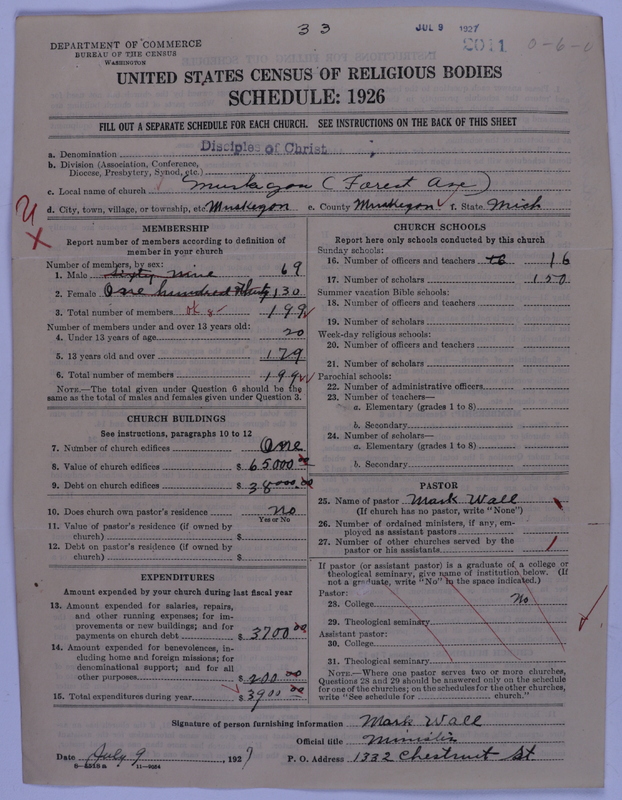 33
JUL 9 1927
2011 0-6-0
DEPARTMENT OF COMMERCE
BUREAU OF THE CENSUS
WASHINGTON
UNITED STATES CENSUS OF RELIGIOUS BODIES
SCHEDULE: 1926
FILL OUT A SEPARATE SCHEDULE FOR EACH CHURCH. SEE INSTRUCTIONS ON THE BACK OF THIS SHEET
a. Denomination Disciples of Christ
b. Division (Association, Conference,
Diocese, Presbytery, Synod, etc.)
c. Local name of church Muskegon (Forest Ave)
d. City, town, village, or township, etc. Muskegon e. County Muskegon f. State Mich
MEMBERSHIP
Report number of members according to definition of
member in your church
Number of members, by sex:
1. Male sixty nine 69
2. Female One hundred thirty 130
3. Total number of members ok 199
Number of members under and over 13 years old:
4. Under 13 years of age 20
5. 13 years old and over 179
6. Total number of members 199
NOTE.—The total given under Question 6 should be the
same as the total of males and females given under Question 3.
CHURCH BUILDINGS
See instructions, paragraphs 10 to 12
7. Number of church edifices One
8. Value of church edifices $ 65000 00
9. Debt on church edifices $ 38000.00
10. Does church own pastor's residence No
Yes or No
11. Value of pastor's residence (if owned by
church) $
12. Debt on pastor's residence (if owned by
church) $
EXPENDITURES
Amount expended by your church during last fiscal year
13. Amount expended for salaries, repairs,
and other running expenses; for im-
provements or new buildings; and for
payments on church debt $ 3700 00
14. Amount expended for benevolences, in-
cluding home and foreign missions; for
denominational support; and for all
other purposes $ 200 00
15. Total expenditures during year $ 3900 00
CHURCH SCHOOLS
Report here only schools conducted by this church
Sunday schools:
16. Number of officers and teachers 16 16
17. Number of scholars 150
Summer vacation Bible schools:
18. Number of officers and teachers
19. Number of scholars
Week-day religious schools:
20. Number of officers and teachers
21. Number of scholars
Parochial schools:
22. Number of administrative officers
23. Number of teachers—
a. Elementary (grades 1 to 8)
b. Secondary
24. Number of scholars—
a. Elementary (grades 1 to 8)
b. Secondary
PASTOR
25. Name of pastor Mark Wall
(If church has no pastor, write "None")
26. Number of ordained ministers, if any, em-
ployed as assistant pastors
27. Number of other churches served by the
pastor or his assistants
If pastor (or assistant pastor) is a graduate of a college or
theological seminary, give name of institution below. (If
not a graduate, write "No" in the space indicated.)
Pastor:
28. College No
29. Theological seminary
Assistant pastor:
30. College
31. Theological seminary
NOTE.—Where one pastor serves two or more churches,
Questions 28 and 29 should be answered only on the schedule
for one of the churches; on the schedules for the other churches,
write "See schedule for church."
Signature of person furnishing information Mark Wall
Official title Minister
Date July 9, 1927 P. O. Address 1332 Chestnut St.
8-5318a 11-9024